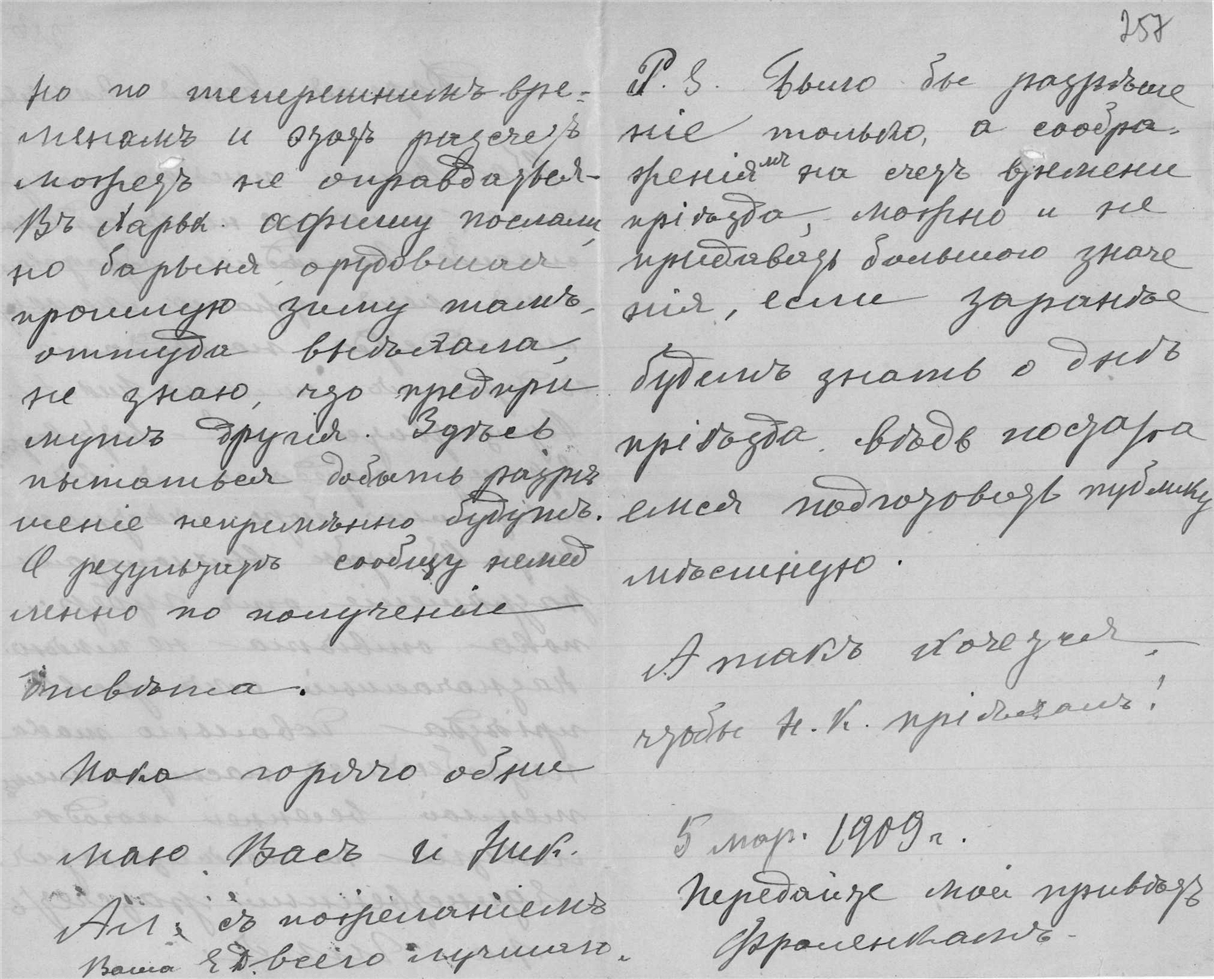 257
но по теперешнимъ вре-
менамъ и этотъ разсчетъ
можетъ не оправдаться.
Въ Харьк. афишу послали,
но барыня орудовшая
прошлую зиму тамъ,
оттуда выѣхала,
не знаю, что предпри
мутъ другія. Здѣсь
пытаться добыть разрѣ
шеніе непремѣнно будутъ.
О результатѣ сообщу немед
ленно по полученіи
отвѣта.
Пока горячо обни
маю Васъ и Ник.
Ал. съ пожеланіемъ
Ваша Е.Д. всего лучшаго.
P. S. Было бы разрѣше
ніе только, а сообра-
женіямъ на счетъ времени
пріѣзда, можно и не
придавать большого значе
нія, если заранѣе
будемъ знать о днѣ
пріѣзда. вѣдь постара
емся подготовить публику
мѣстную.
А такъ хочется,
чтобы Н. К. пріѣхалъ!
5 мар. 1909 г.
Передайте мой привѣтъ
Фроленкамъ.